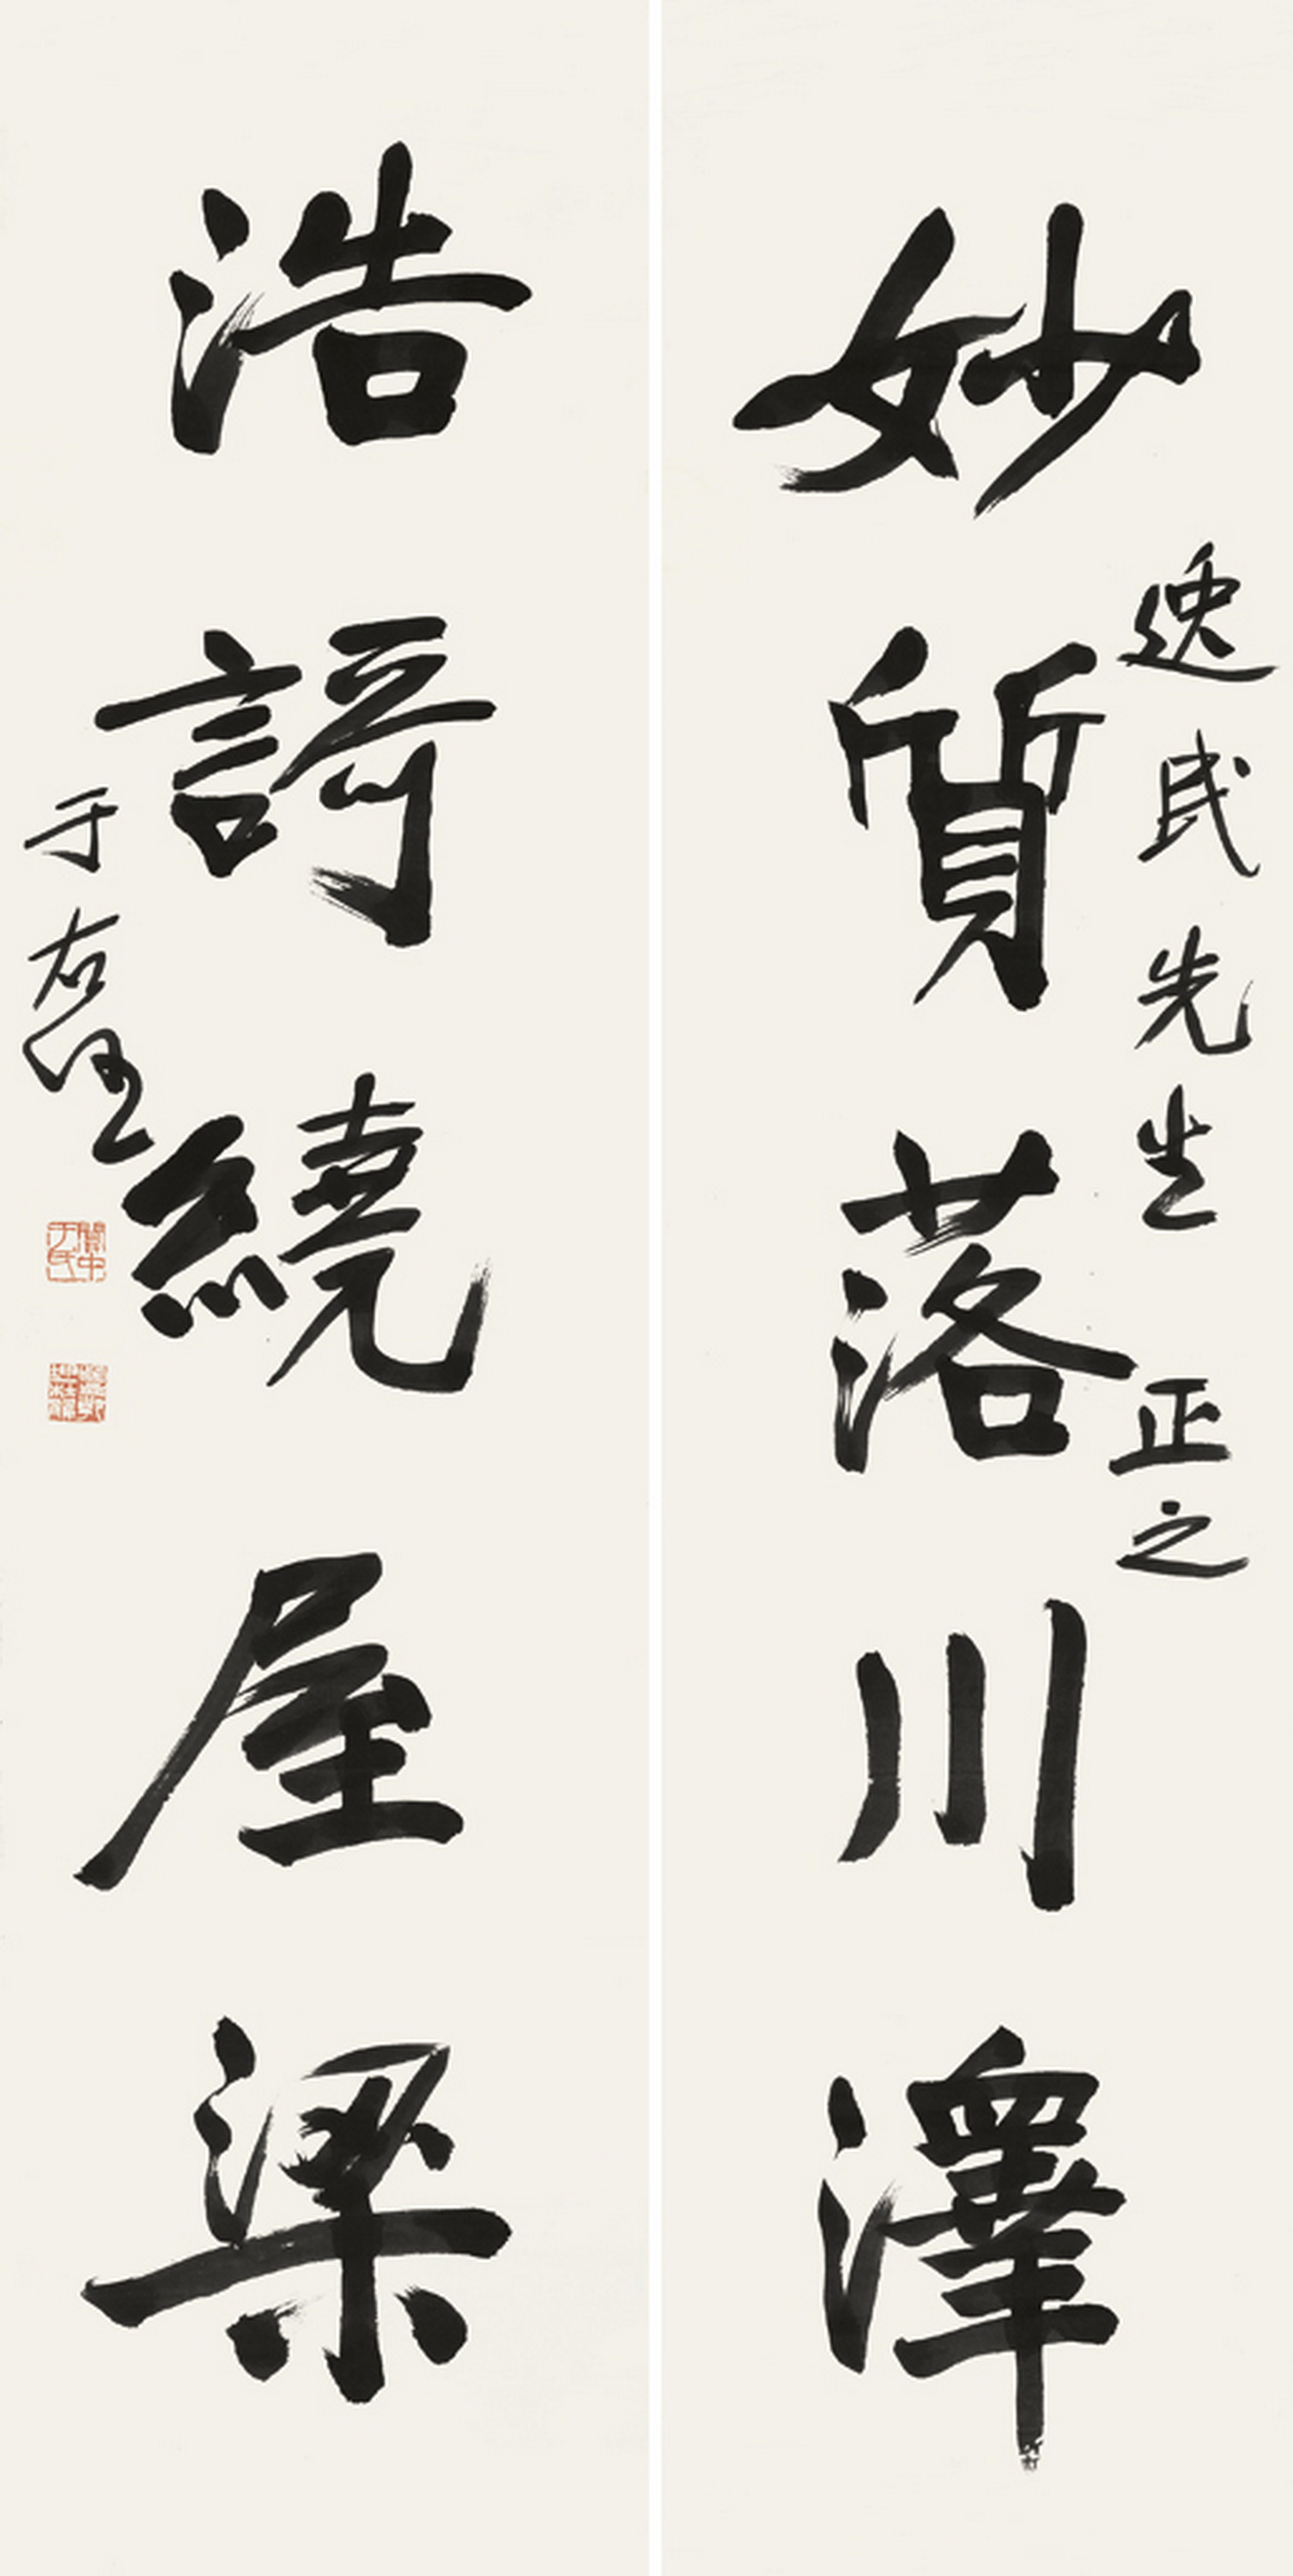 逸民先生 正之
妙質落川澤
浩謌繞屋梁
于右任
關中于氏